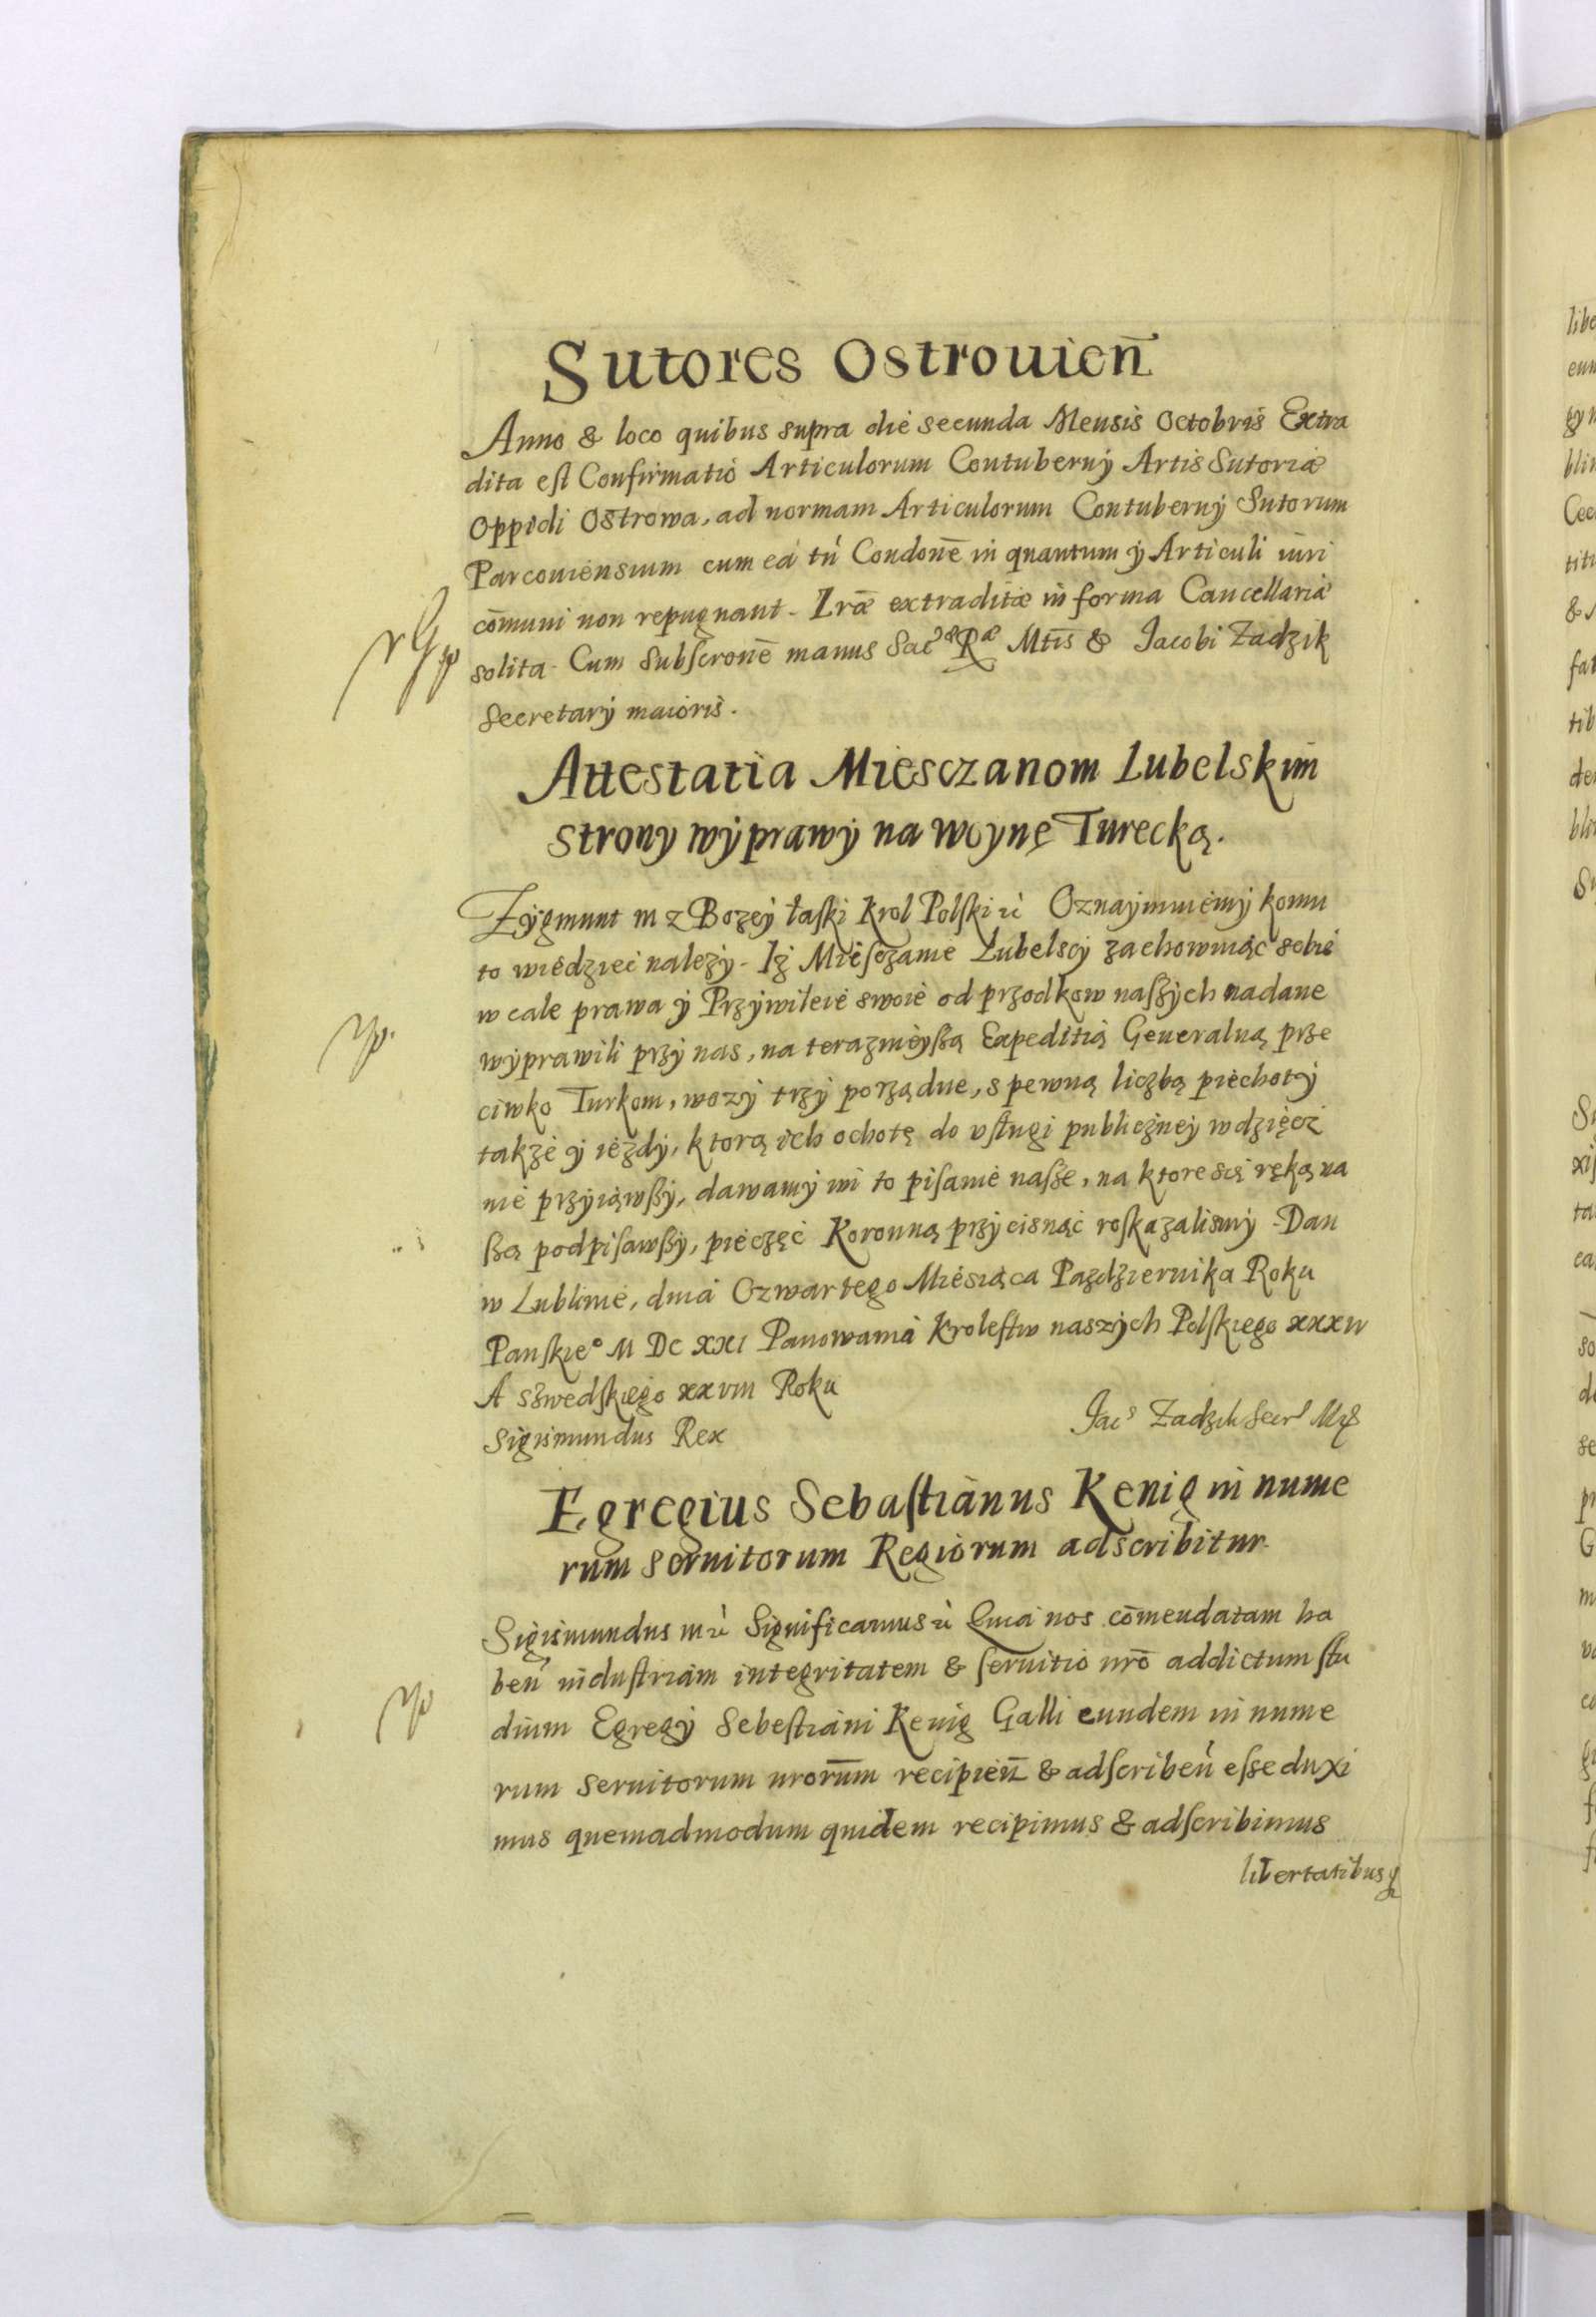 Sutores Ostrouien̄
Anno & loco quibus supra die secunda Mensis Octobris Extra
dita est Confirmatio Articulorum Contubernÿ Artis Sutoriæ
Oppidi Ostrowa, ad normam Articulorum Contubernÿ Sutorum
Parcouiensium cum ea tn̄ Condone̅ in quantum ÿ Articuli iuri
cōmuni non repugnant. Lræ̅ extraditæ in forma Cancellariæ
solita. Cum Subscrone̅ manus Sacæ Ræ Mtis̅ & Jacobi Zadzik
Secretarÿ maioris.
Attestatia Miesczanom Lubelskim
strony wÿprawÿ na woynę Turecką.
Zÿgmunt III z Bozeÿ łaski Krol Polski ꝛc Oznaÿmuiemÿ komu
to wiedziec nalezÿ. Iz Miesczanie Lubelscÿ zachowuiąc sobie
w cale prawa ÿ Przÿwileie swoie od przodkow naszÿch nadane
wÿprawili przÿ nas, na teraznieÿszą Expeditią Generalną prze
ciwko Turkom, wozÿ trzÿ porządne, s pewną liczbą piechotÿ
takze ÿ iezdÿ, ktorą ich ochotę do vsługi publiczneÿ wdzięcz
nie przÿiąwszÿ, dawamÿ im to pisanie nasze, na ktore się ręką na
szą podpisawszÿ, pieczęc Koronną przÿcisnąc roskazalismÿ. Dan
w Lublinie, dnia Czwartego Miesiąca Pazdziernika Roku
Panskieº M DC XXI Panowania Krolestw naszÿch Polskiego XXXIV
A Szwedskiego XXVIII Roku
Sigismundus Rex
Jacs Zadzik Secrs Mꝫ
Egregius Sebastianus Kenig in nume
rum seruitorum Regiorum adscribitur.
Sigismundus III ꝛc Significamus ꝛc Quia nos cōmendatam ha
ben̄ industriam integritatem & seruitio nrō addictum stu
dium Egregÿ Sebestiani Kenig Galli eundem in nume
rum seruitorum nrorum̅ recipien̄ & adscriben̄ esse duxi
mus quemadmodum quidem recipimus & adscribimus
libertatibusq